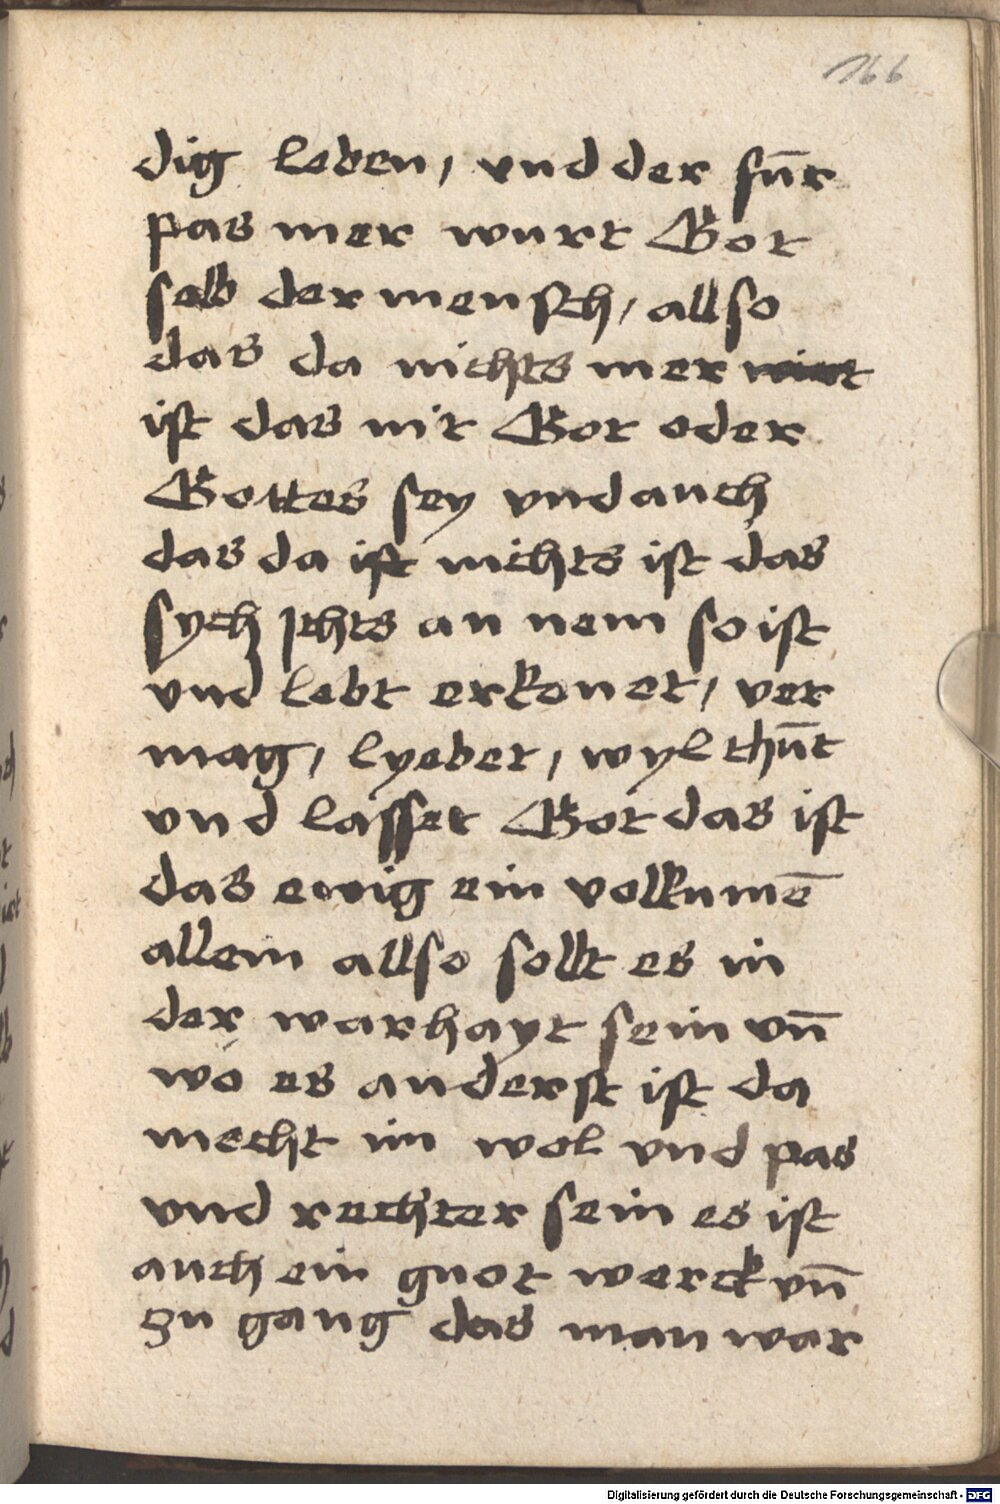 166
dig leben, vnd der fūr
pas mer wurt Got
selb der mensch, allso
das da nichts mer
ist das nit Got oder
Gottes sey vnd auch
das da ist nichts ist das
sych ichts an nem so ist
vnd lebt erkenet, ver
mag, lyebet, wyl thūt
vnd lasset Got das ist
das ewig ein volkumē
allein allso sollt es in
der warhayt sein vn̄
wo es anderst ist da
mecht im wol vnd pas
vnd rechter sein es ist
auch ein guot werck vn̄
zu gang das man war
Digitalisierung gefördert durch die Deutsche Forschungsgemeinschaft - DFG